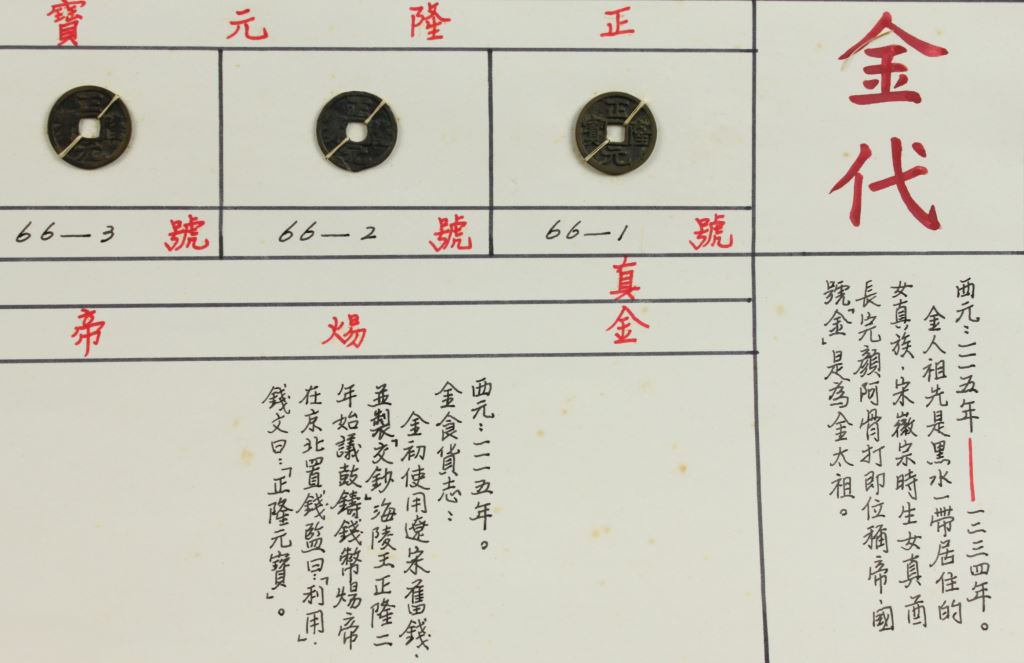 金代
西元：一一一五年——一二三四年。
金人祖先是黑水一帶居住的
女真族，宋徽宗時生女真酋
長完顏阿骨打即位稱帝，國
號「金」是為金太祖。
正隆元寶
正隆元寶
正隆元
66—1 號
66—2 號
66—3 號
真
金煬帝
西元：一一一五年。
金食貨志：
金初使用遼宋舊錢，
並製「交鈔」海陵王正隆二
年始議鼓鑄錢幣煬帝
在京北置錢監曰：「利用」，
錢文曰：「正隆元寶」。